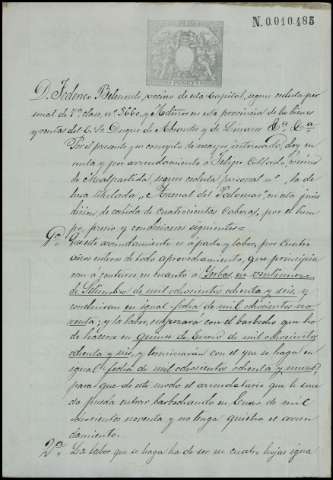 N.0.010.485
D. Federico Belmonte vecino de esta Capital, segun cedula per
sonal de clase, nº y Actor en esta provincia de los bienes
y rentas del E. S. Duque de Abrantes y de Linares &ª &ª
Por el presente y en concepto de mayor interesado, doy en
renta y por arrendamiento a Felipe Collado, vecino
de Malpartida, segun cedula personal nº la de
hesa titulada, Arenal del Palomar en esta juris
diccion de cabida de cuatrocientas cabezas, por el tiem
po, precio y condiciones siguientes=
1ª Que este arrendamiento es a pasto y labor, por cuatro
años enteros de todo aprovechamiento, que principia
ran a contarse en cuanto a yerbas en veintinueve
de Setiembre de mil ochocientos ochenta y seis, y
concluiran en igual fecha de mil ochocientos no
venta; y la labor, empezará con el barbecho que ha
de hacerse en quince de Enero de mil ochocientos
ochenta y seis, y terminarán con el que se haga en
igual fecha de mil ochocientos ochenta y nueve
para que de este modo el arrendatario que le suce
da pueda entrar barbechando en Enero de mil
ochocientos noventa y no tenga quiebra el arren
damiento.
2ª La labor que se haga ha de ser en cuatro hojas igua